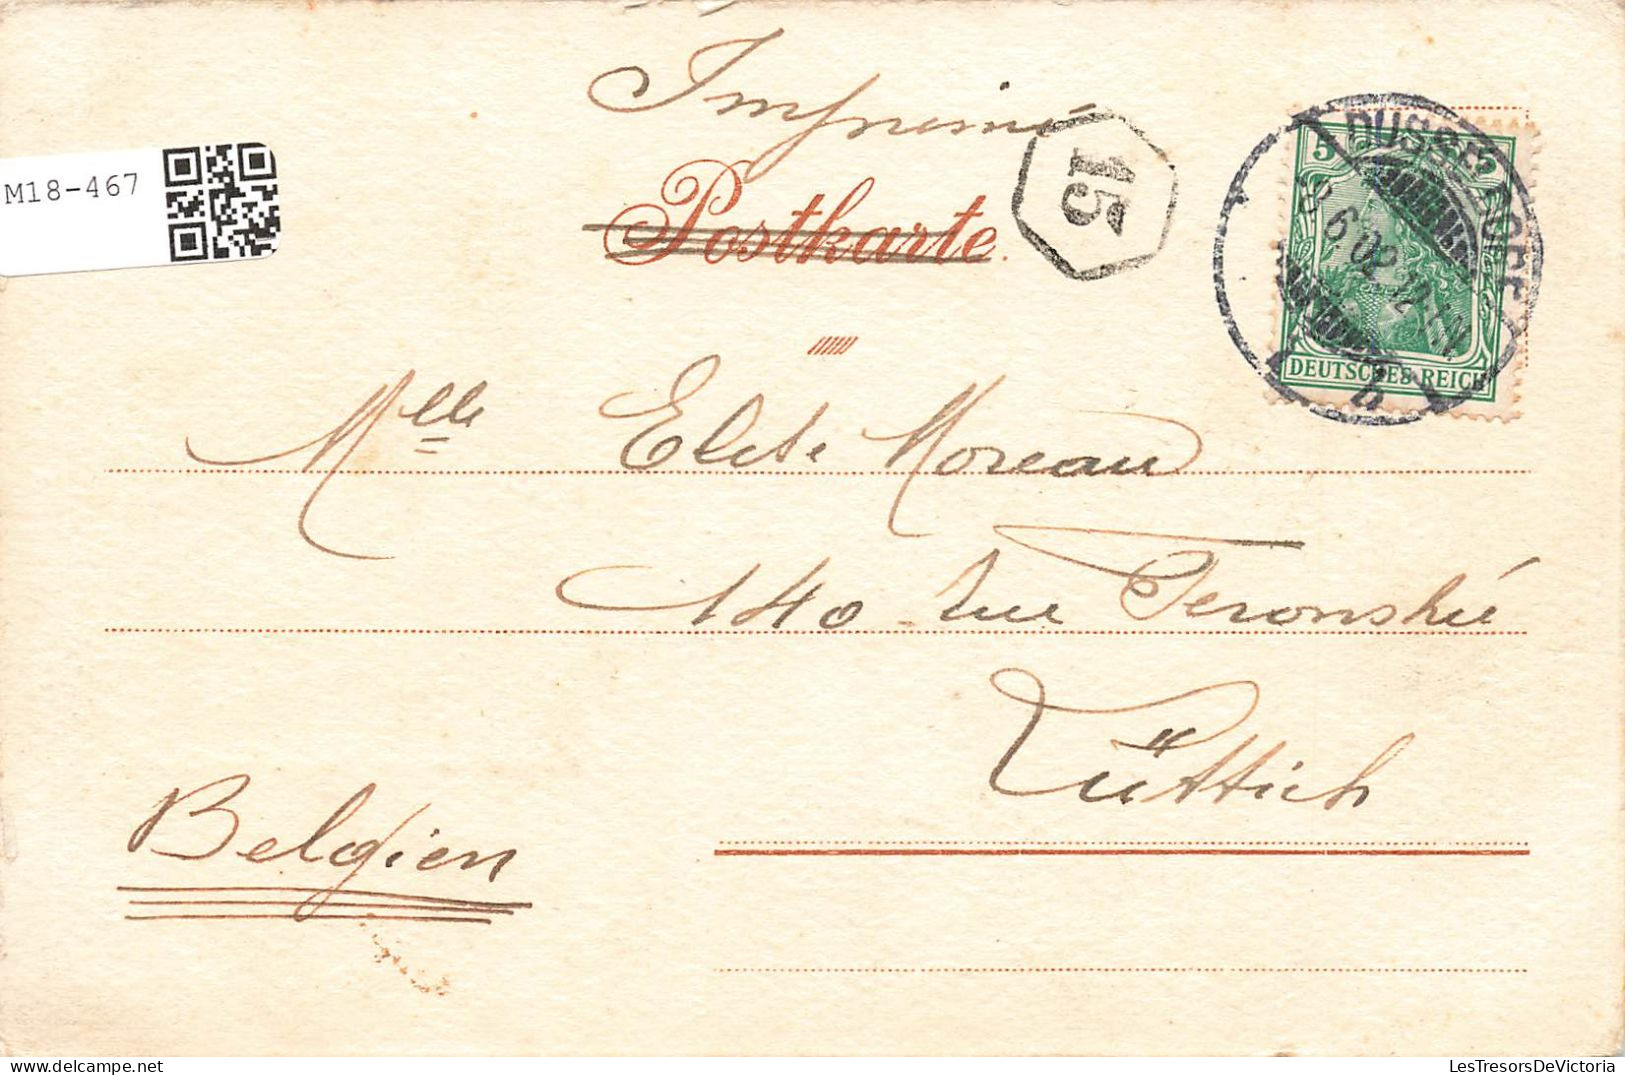 Imprimé
M18-467
Postkarte.
15
DUSSELDORF
5 5
6.02.12-1N.
DEUTSCHES REICH
b
Mlle Elise Moreau
140 rue Féronstrée
Lüttich
Belgien
LesTresorsDeVictoria